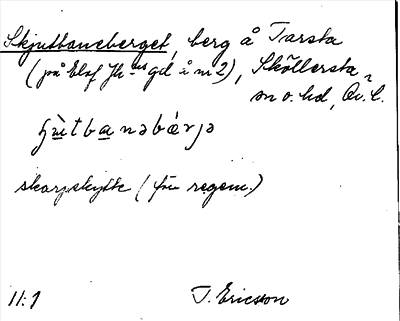 Skjuttbaneberget, berg å Tarsta
(på Elof Jh-ns gd å nr 2), Sköllersta
sn o. hd, Ör. l.
ʃʉ̀tbanəbærjə
skarpskytte (för regem.)
11:1 T. Ericsson